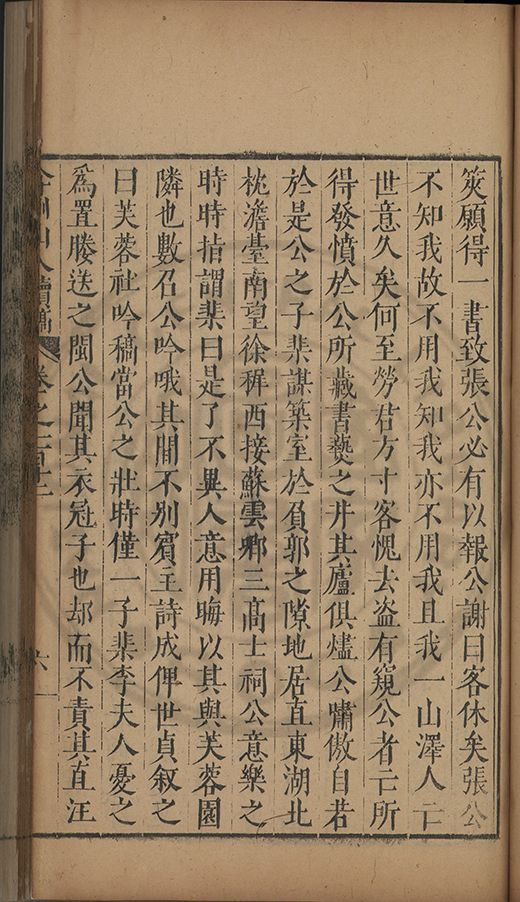 筴願得一書致張公必有以報公謝曰客休矣張公
不知我故不用我知我亦不用我且我一山澤人亡
世意久矣何至勞君方寸客愧去盗有窺公者亡所
得發憤於公所藏書爇之并其廬俱燼公嘯傲自若
於是公之子棐謀築室於負郭之隙地居直東湖北
枕澹臺南望徐稺西接蘇雲卿三高士祠公意樂之
時時指謂棐曰是了不異人意用晦以其與芙蓉園
隣也數召公吟哦其間不別賓主詩成俾世貞叙之
曰芙蓉社吟稿當公之壯時僅一子棐李夫人憂之
爲置媵送之閩公聞其衣冠子也却而不責其直汪
人續稿 卷之一百十二 六